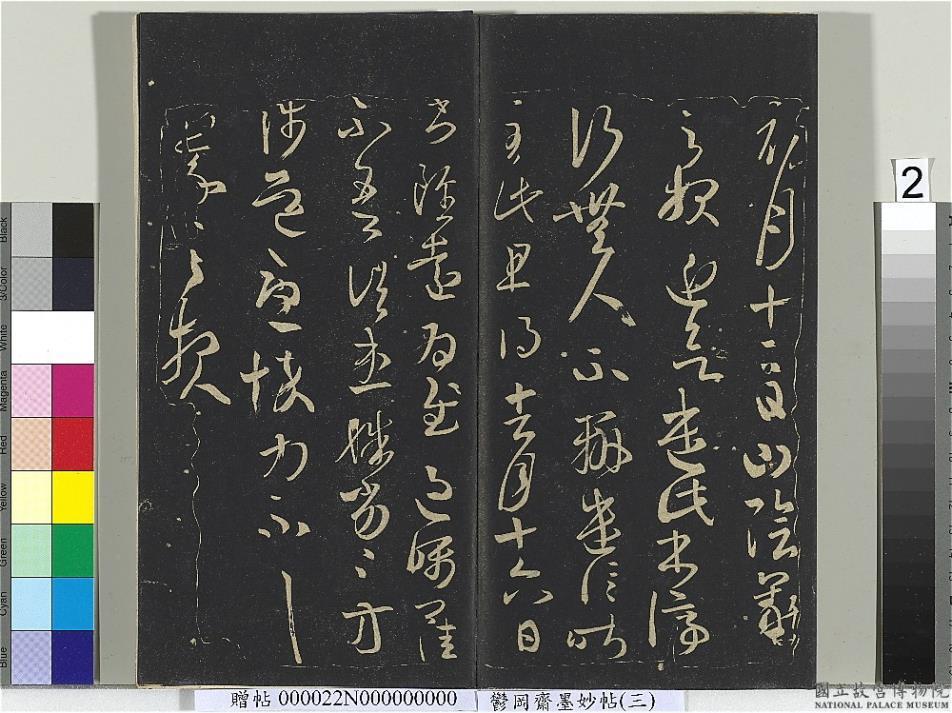 初月十二日山陰羲
之報近欲遣此書停
行無人不辦遣信昨
至此且得去月十六日
書雖遠為慰過囑卿佳
不吾諸患殊勞〻方
涉道憂悴力不具
羲之報
2
Black
3/Color
White
Magenta
Red
Yellow
Green
Cyan
Blue
贈帖 000022N000000000 鬱岡齋墨妙帖(三)
國立故宮博物院
NATIONAL PALACE MUSEUM